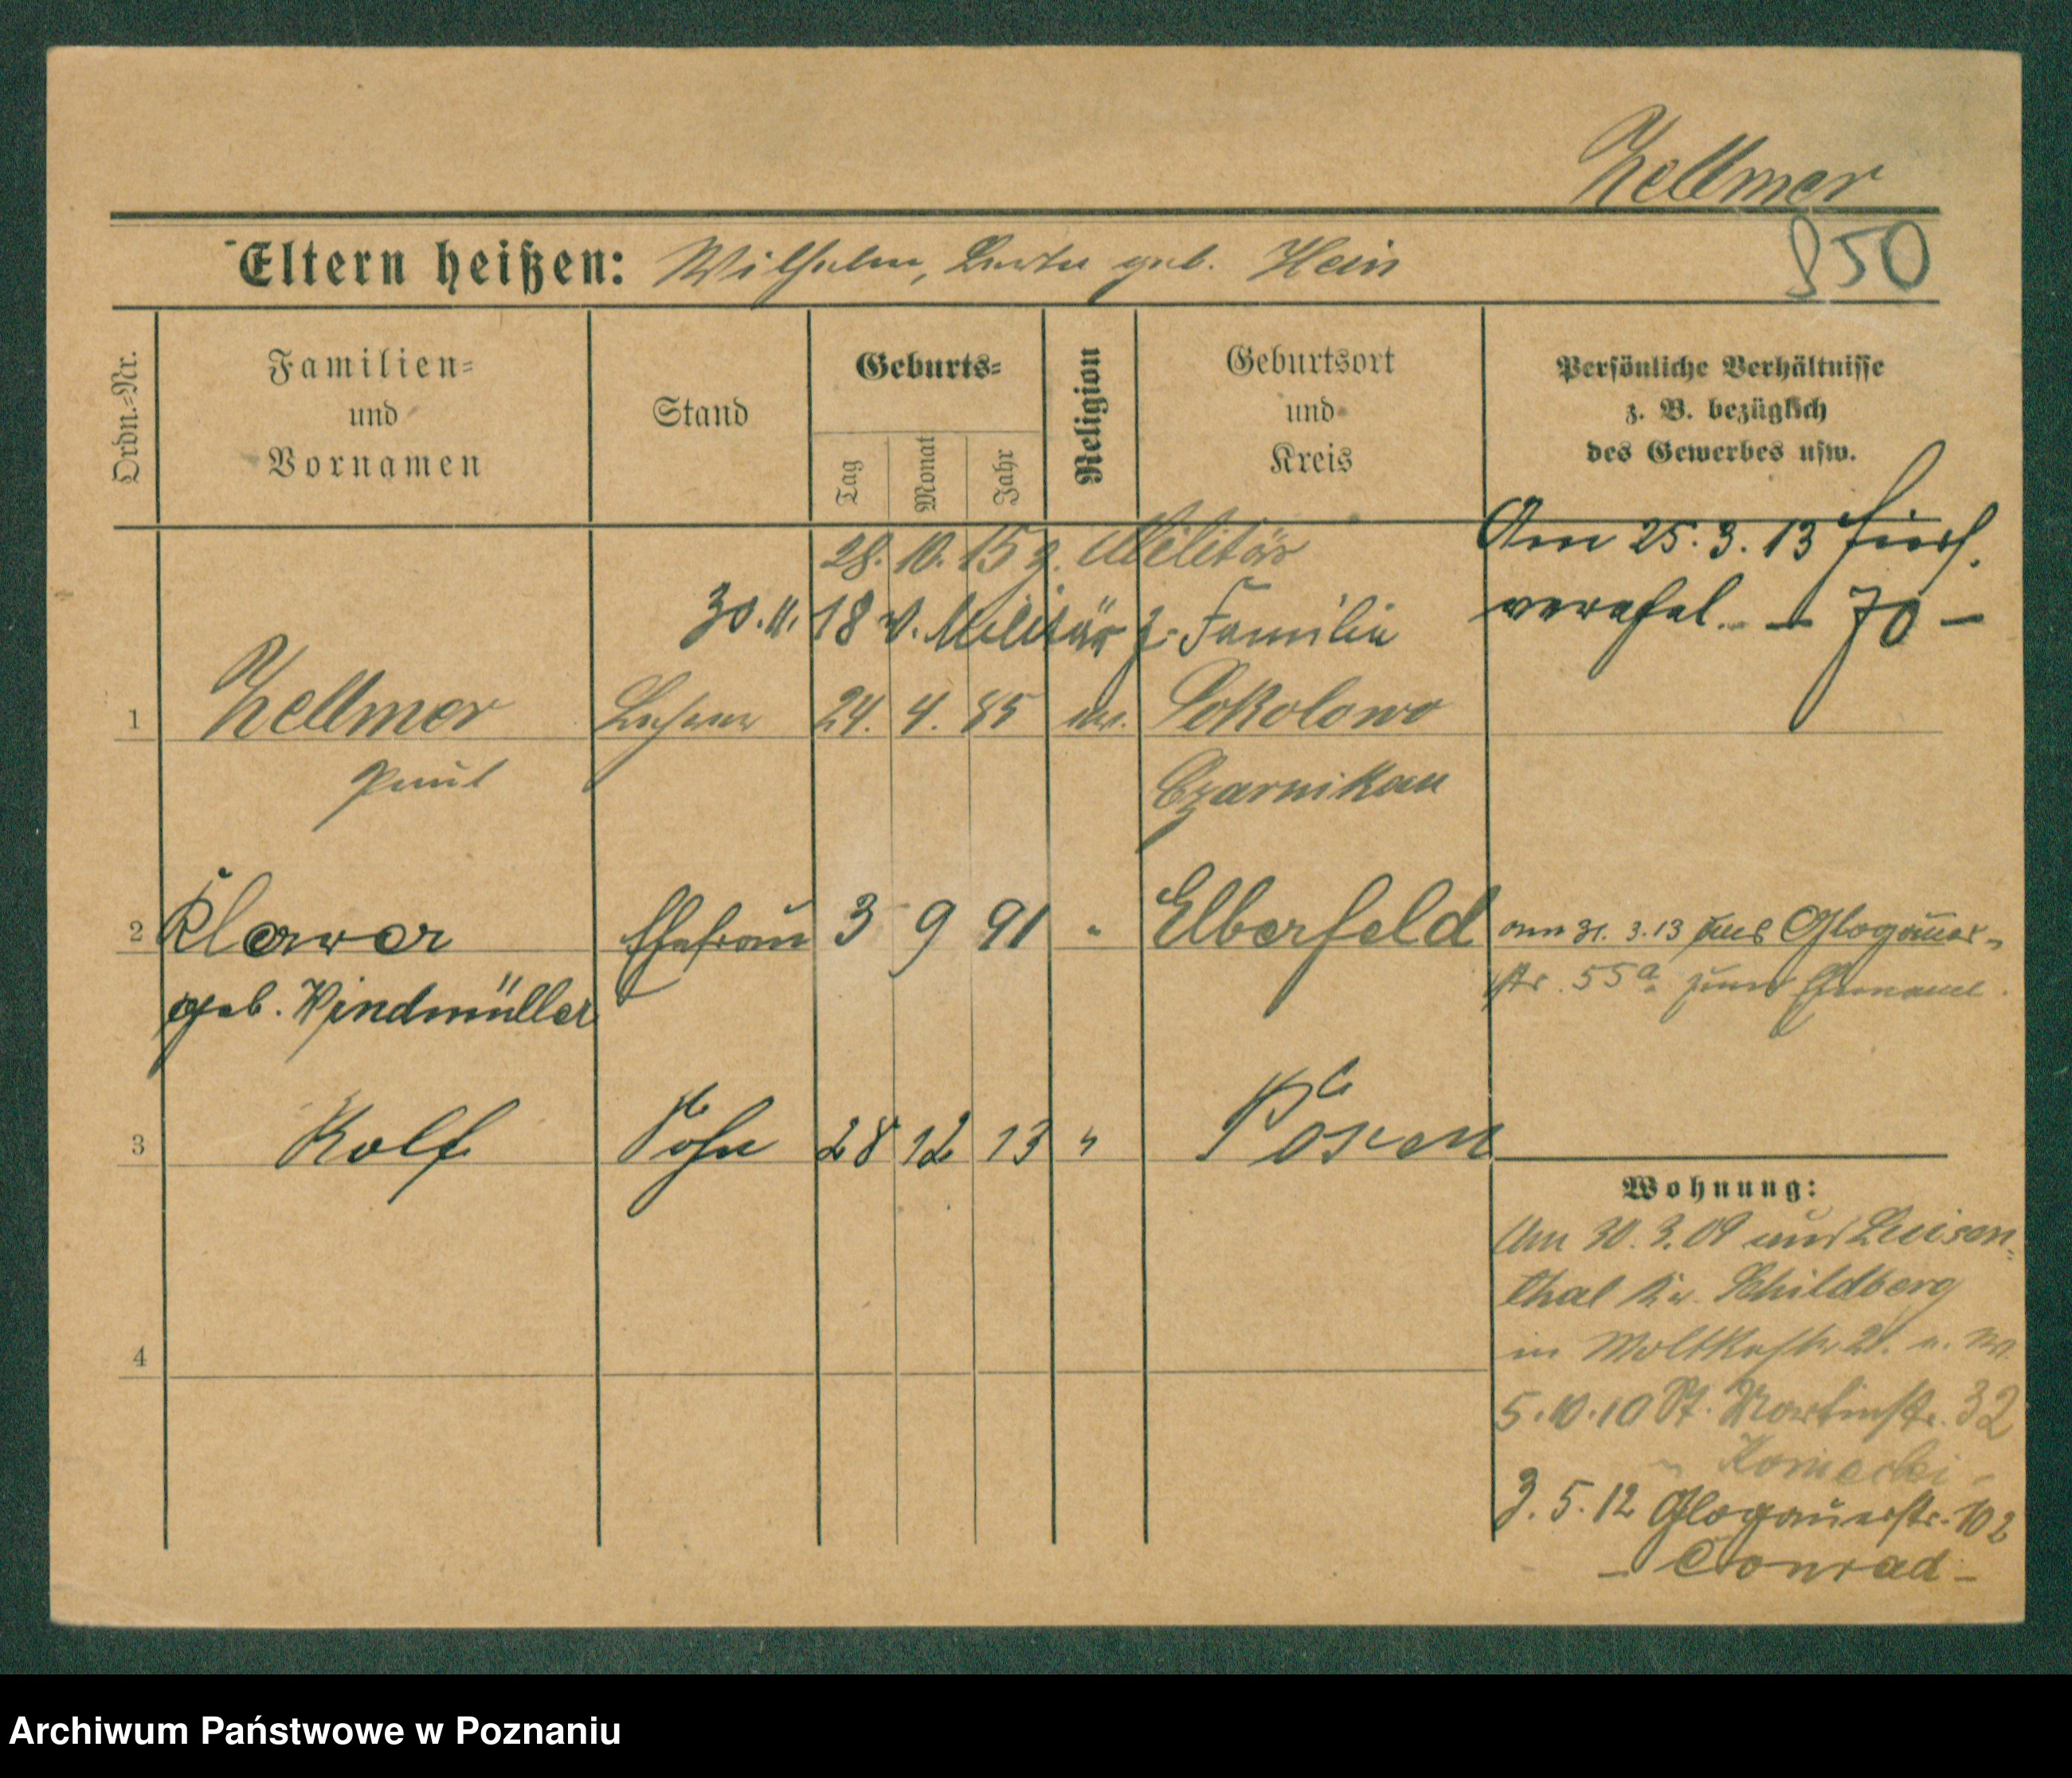 Zellmer
Eltern heißen: Wilhelm, Berta geb. Hein
850
Ordn.-Nr.
Familien-
und
Vornamen
Stand
Geburts-
Tag
Monat
Jahr
Religion
Geburtsort
und
Kreis
Persönliche Verhältnisse
z. B. bezüglich
des Gewerbes usw.
28. 10. 15 z. Militär
30. 11. 18 v. Militär z. Familie
Am 25. 3. 13 hier
verehel. — 70 —
1 Zellmer Lehrer 24. 4. 85 ev. Sokolowo
Paul Czarnikau
2 Klara Ehefrau 3 9 91 " Elberfeld
geb. Windmüller
am 31. 3. 13 aus Glogauer-
str. 55a zum Ehemann.
3 Rolf Sohn 28 12 13 " Posen
4
Wohnung:
Am 30. 3. 09 aus Luisen-
thal Kr. Schildberg
in Moltkestr. 21.
5. 10. 10 St. Martinstr. 32
3. 5. 12 Glogauerstr. 102
— Conrad —
Archiwum Państwowe w Poznaniu